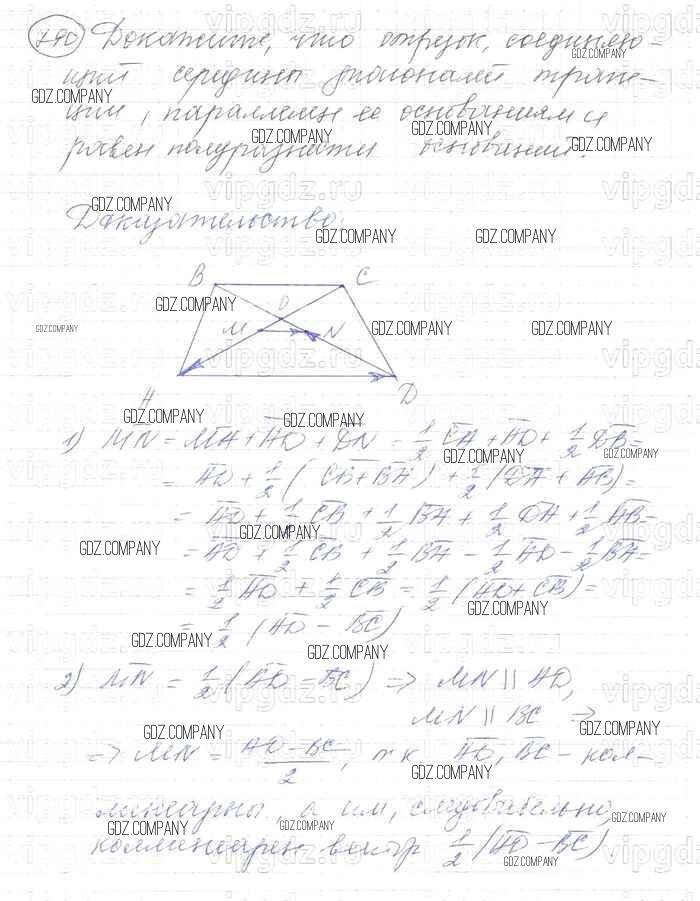 790 Докажите, что отрезок, соединяю-
щий середины диагоналей трапе-
ции, параллелен ее основаниям и
равен полуразности оснований.
Доказательство:
B C
O
M N
A D
1) MN = MA + AD + DN = 1/2 CA + AD + 1/2 DB =
= AD + 1/2 (CB + BA) + 1/2 (DA + AB) =
= AD + 1/2 CB + 1/2 BA + 1/2 DA + 1/2 AB =
= AD + 1/2 CB + 1/2 BA - 1/2 AD - 1/2 BA =
= 1/2 AD + 1/2 CB = 1/2 (AD + CB) =
= 1/2 (AD - BC)
2) MN = 1/2 (AD - BC) => MN || AD,
MN || BC =>
=> MN = (AD - BC)/2, т к AD, BC - кол-
линеарны, а им, следовательно,
коллинеарен вектор 1/2 (AD - BC).
GDZ.COMPANY
vipgdz.ru